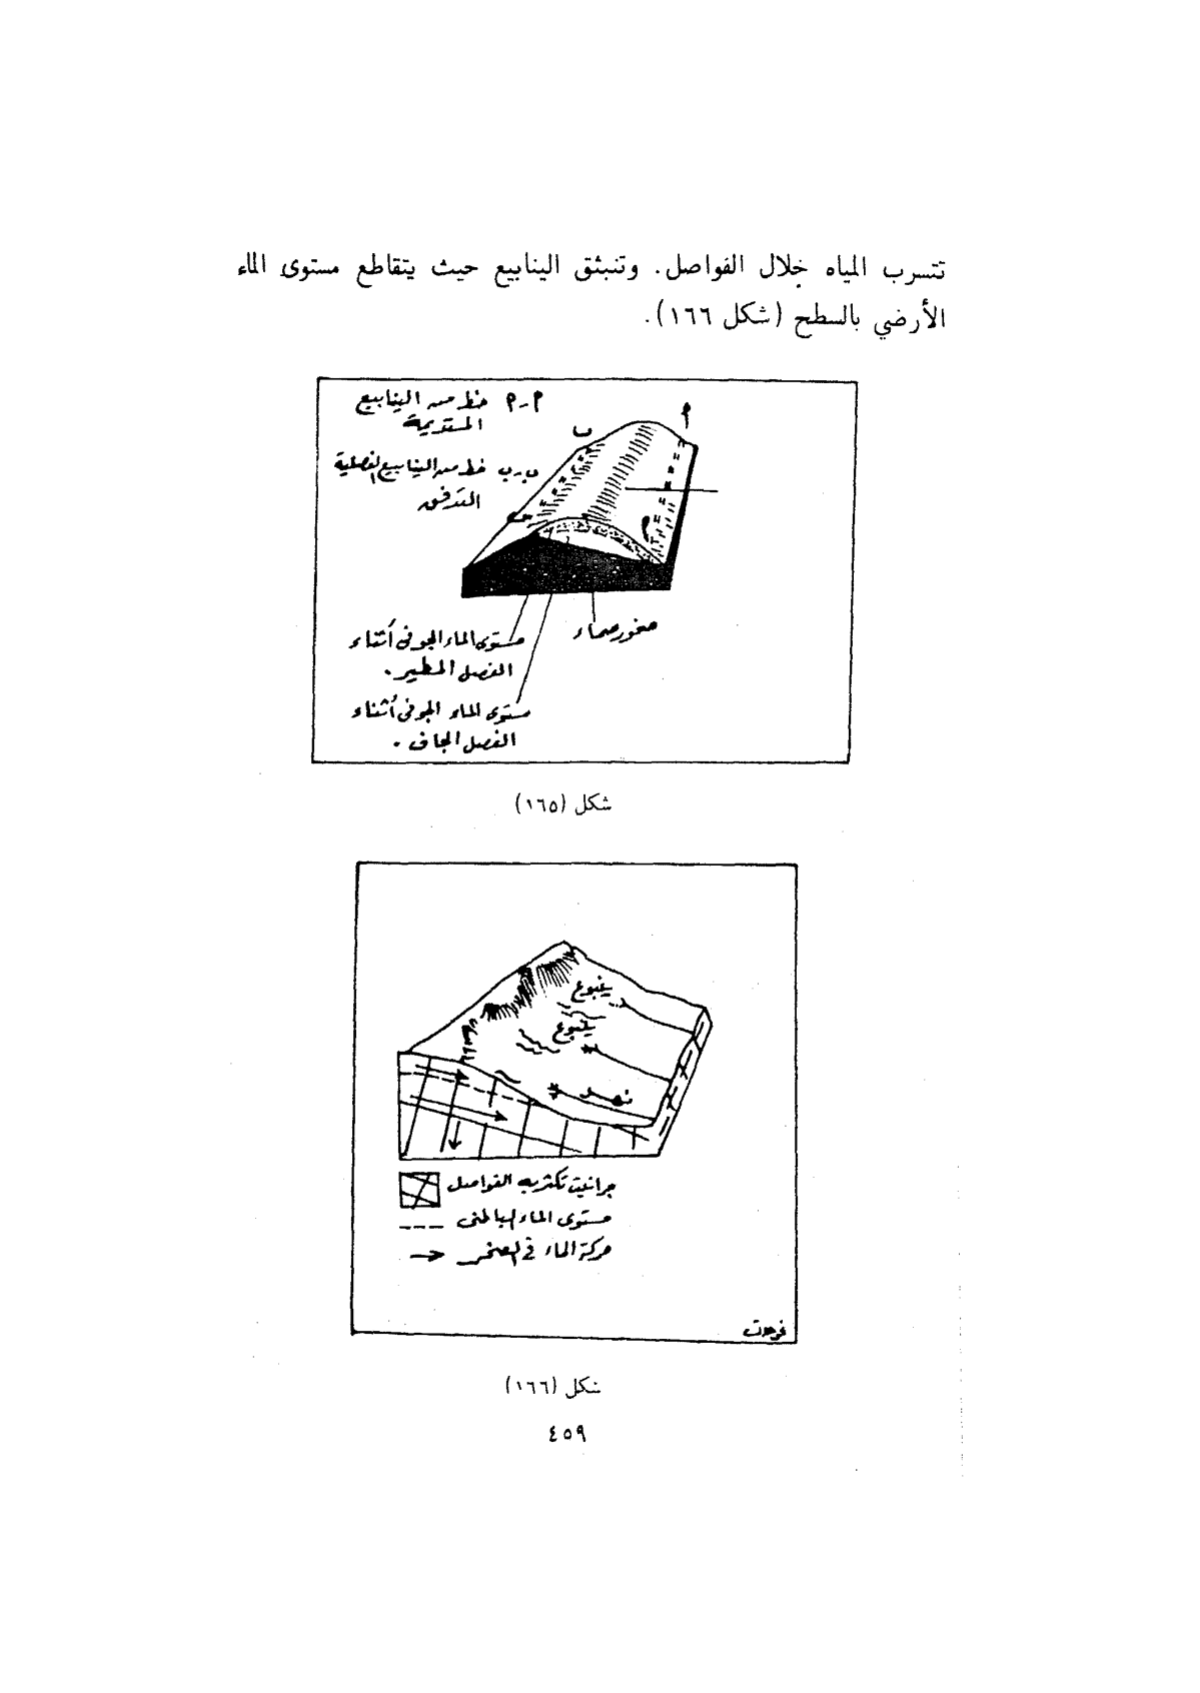 تتسرب المياه خلال الفواصل. وتنبثق الينابيع حيث يتقاطع مستوى الماء
الأرضي بالسطح (شكل ١٦٦).
م - م خط من الينابيع
المستديمة
ب - ب خط من الينابيع الفصلية
التدفق
م
ب
ب
م
صخور صماء
مستوى الماء الجوفى أثناء
الفصل المطير.
مستوى الماء الجوفى أثناء
الفصل الجاف.
شكل (١٦٥)
ينبوع
ينبوع
نهر
جرانيت تكثر به الفواصل
مستوى الماء الباطنى
حركة الماء فى الصخر
شكل (١٦٦)
٤٥٩